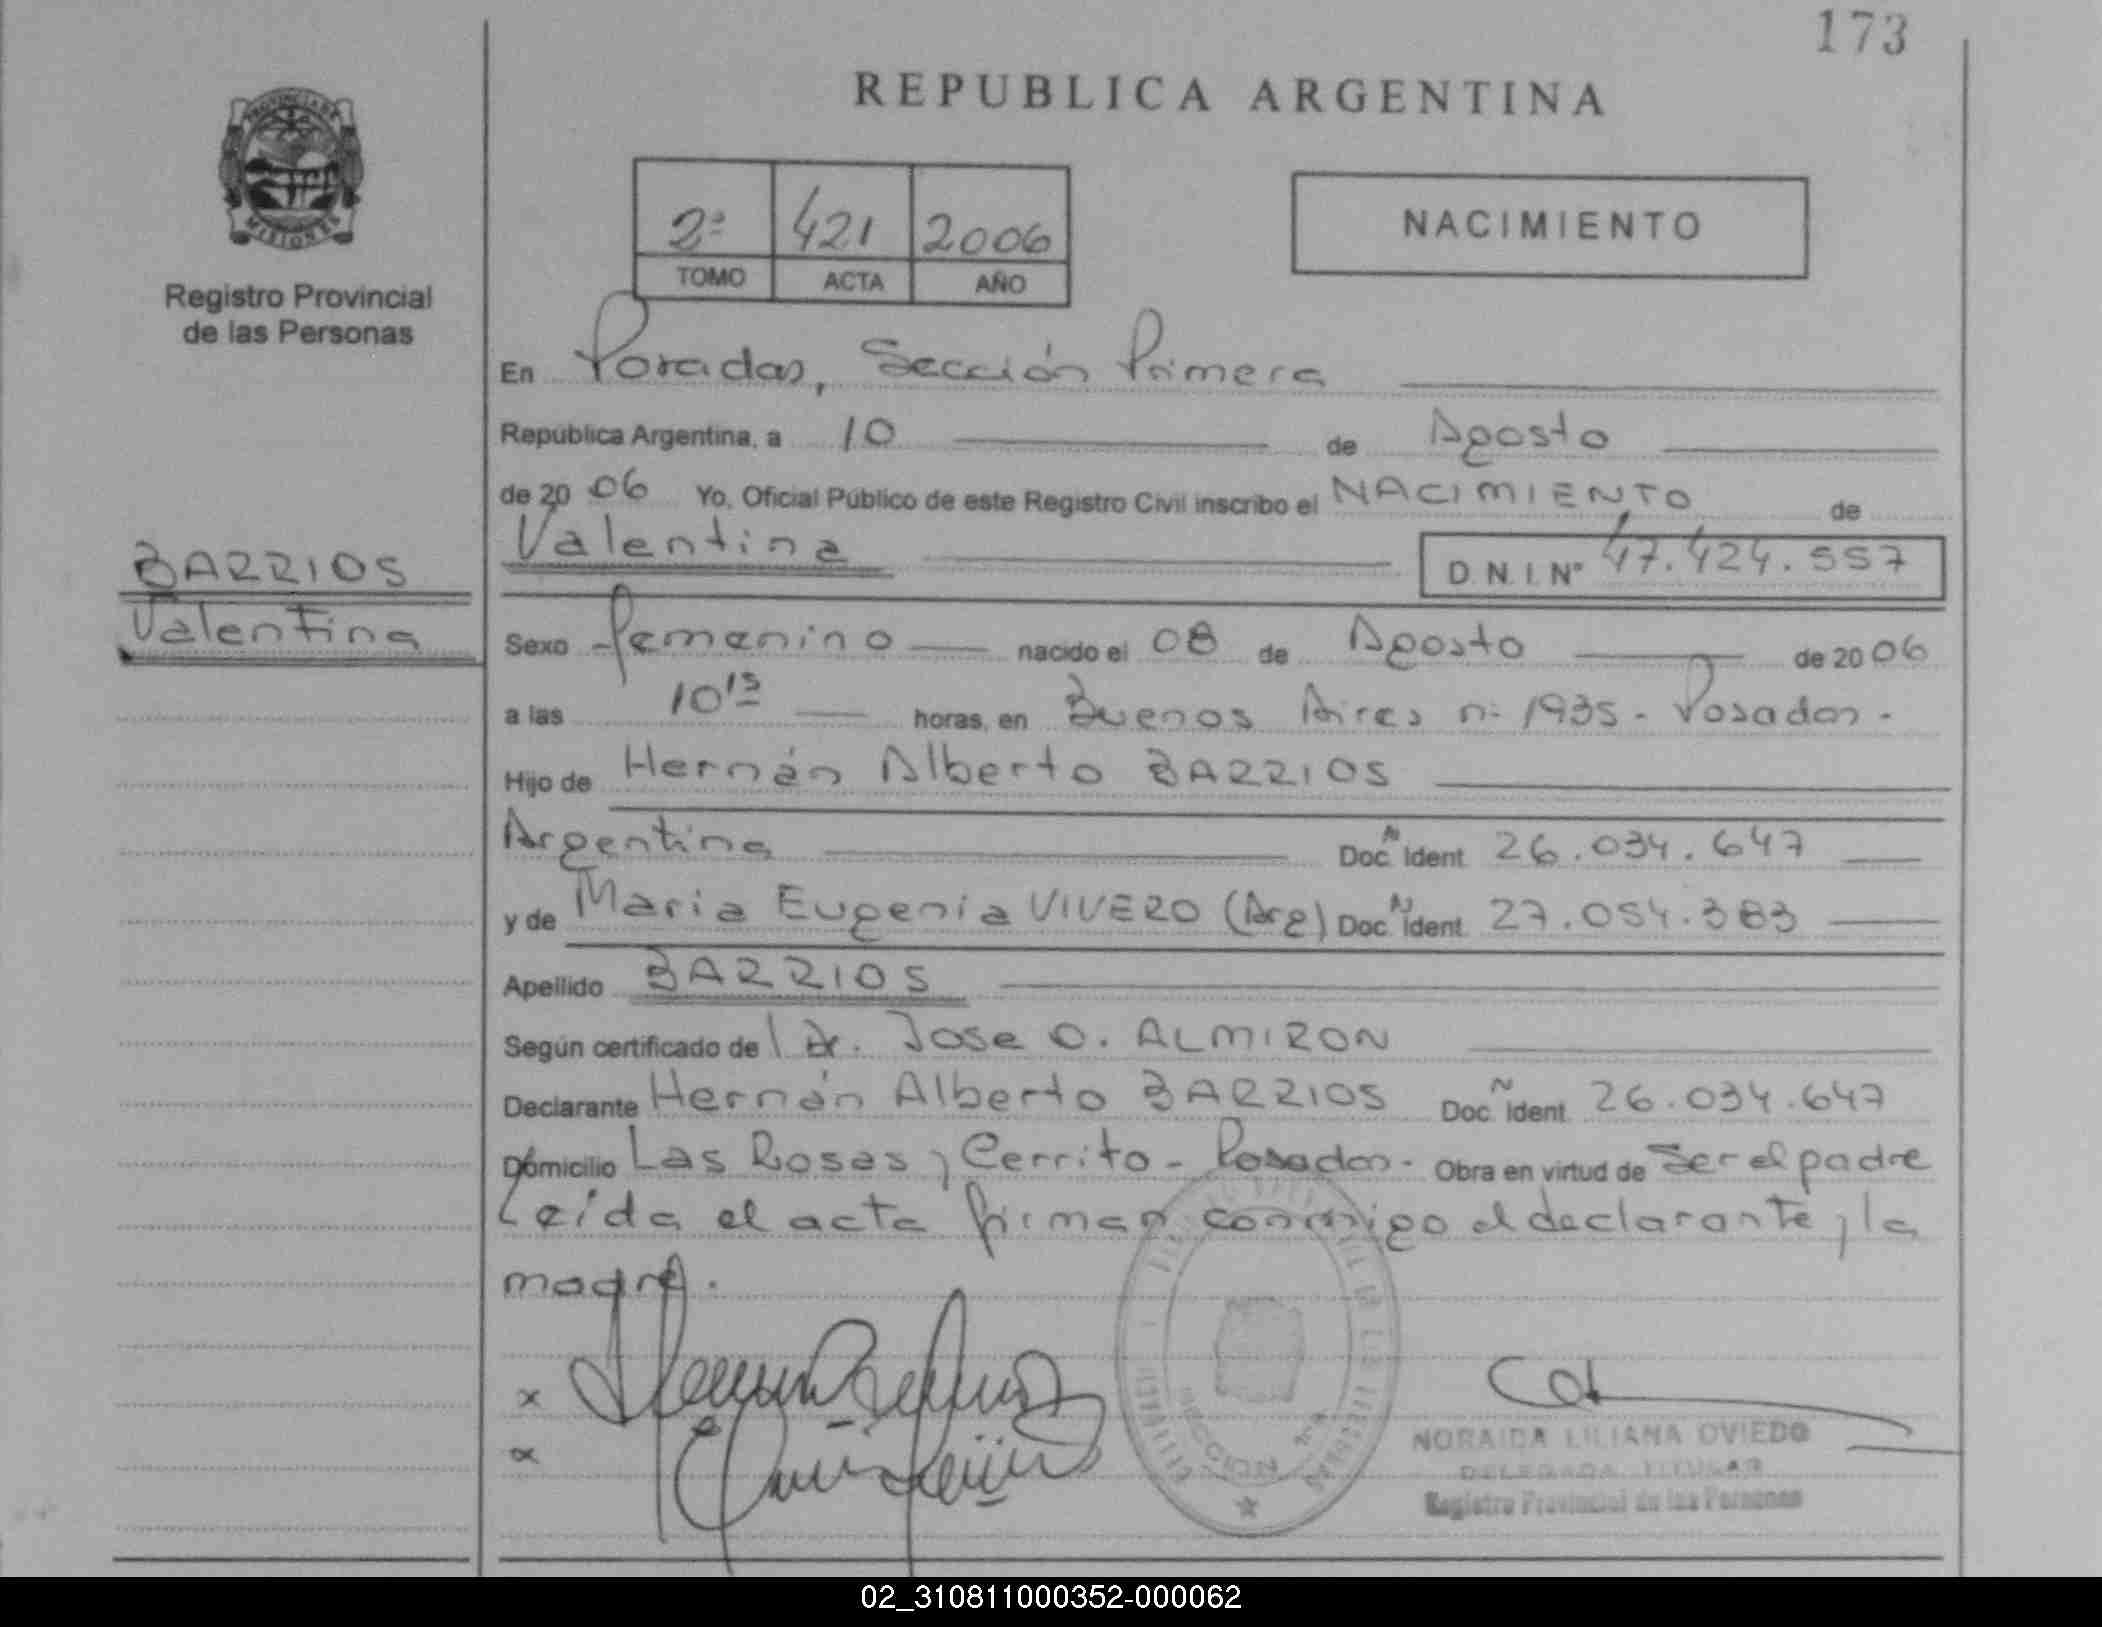 173
REPUBLICA ARGENTINA
PROVINCIA DE
MISIONES
Registro Provincial
de las Personas
2ª 421 2006
TOMO ACTA AÑO
NACIMIENTO
En Posadas, Sección Primera
República Argentina, a 10 de Agosto
de 2006 Yo, Oficial Público de este Registro Civil inscribo el NACIMIENTO de
Valentina D.N.I. Nº 47.424.557
BARRIOS
Valentina
Sexo femenino nacido el 08 de Agosto de 2006
a las 10 15 horas, en Buenos Aires nº 1935 - Posadas -
Hijo de Hernán Alberto BARRIOS
Argentina Doc. N Ident. 26.034.647
y de Maria Eugenia VIVERO (Arg) Doc. N Ident. 27.054.383
Apellido BARRIOS
Según certificado de Dr. Jose O. ALMIRON
Declarante Hernán Alberto BARRIOS Doc. N Ident. 26.034.647
Domicilio Las Rosas y Cerrito - Posadas - Obra en virtud de Ser el padre
Leída el acta firman conmigo el declarante y la
madre.
x
x
SECCION 1ra
NORAIDA LILIANA OVIEDO
DELEGADA TITULAR
Registro Provincial de las Personas
02_310811000352-000062